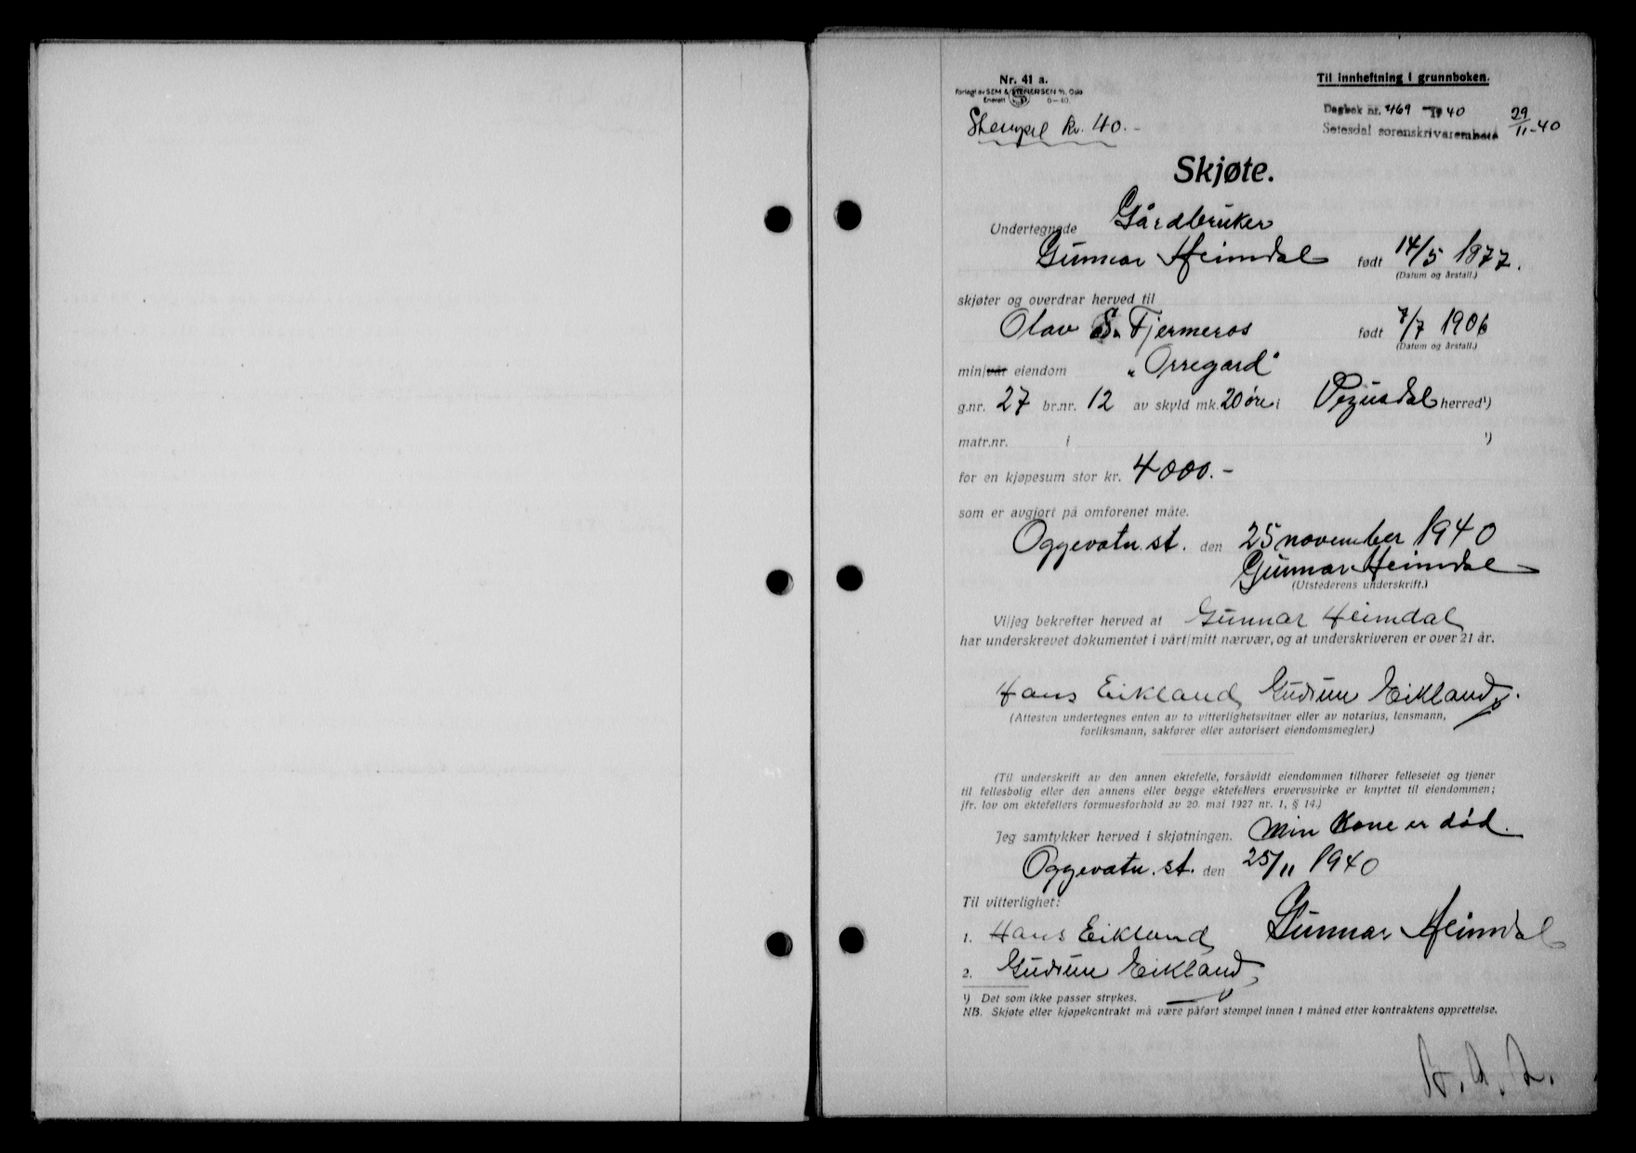 Nr. 41 a.
Forlagt av SEM & STENERSEN A/S, Oslo
Enerett 6—40.
Stempel kr. 40.-
Til innheftning i grunnboken.
Dagbok nr. 469 1940 29/11-40
Setesdal sorenskriverembete
Skjøte.
Undertegnede Gårdbruker
Gunnar Heimdal født 14/5 1877.
(Datum og årstall.)
skjøter og overdrar herved til
Olav S. Tjermeros født 7/7 1906
(Datum og årstall.)
min/vår eiendom "Orregard"
g.nr. 27 br.nr. 12 av skyld mk. 20 øre i Vegusdal herred¹)
matr.nr. i ¹)
for en kjøpesum stor kr. 4000.-
som er avgjort på omforenet måte.
Oggevatn st. den 25 november 1940
Gunnar Heimdal
(Utstederens underskrift.)
Vi/jeg bekrefter herved at Gunnar Heimdal
har underskrevet dokumentet i vårt/mitt nærvær, og at underskriveren er over 21 år.
Hans Eikland Gudrun Eikland.
(Attesten undertegnes enten av to vitterlighetsvitner eller av notarius, lensmann,
forliksmann, sakfører eller autorisert eiendomsmegler.)
(Til underskrift av den annen ektefelle, forsåvidt eiendommen tilhører felleseiet og tjener
til fellesbolig eller den annens eller begge ektefellers ervervsvirke er knyttet til eiendommen;
jfr. lov om ektefellers formuesforhold av 20. mai 1927 nr. 1, § 14.)
Jeg samtykker herved i skjøtningen. Min Kone er død.
Oggevatn. st. den 25/11 1940
Til vitterlighet:
1. Hans Eikland Gunnar Heimdal
2. Gudrun Eikland
¹) Det som ikke passer strykes.
NB. Skjøte eller kjøpekontrakt må være påført stempel innen 1 måned etter kontraktens opprettelse.